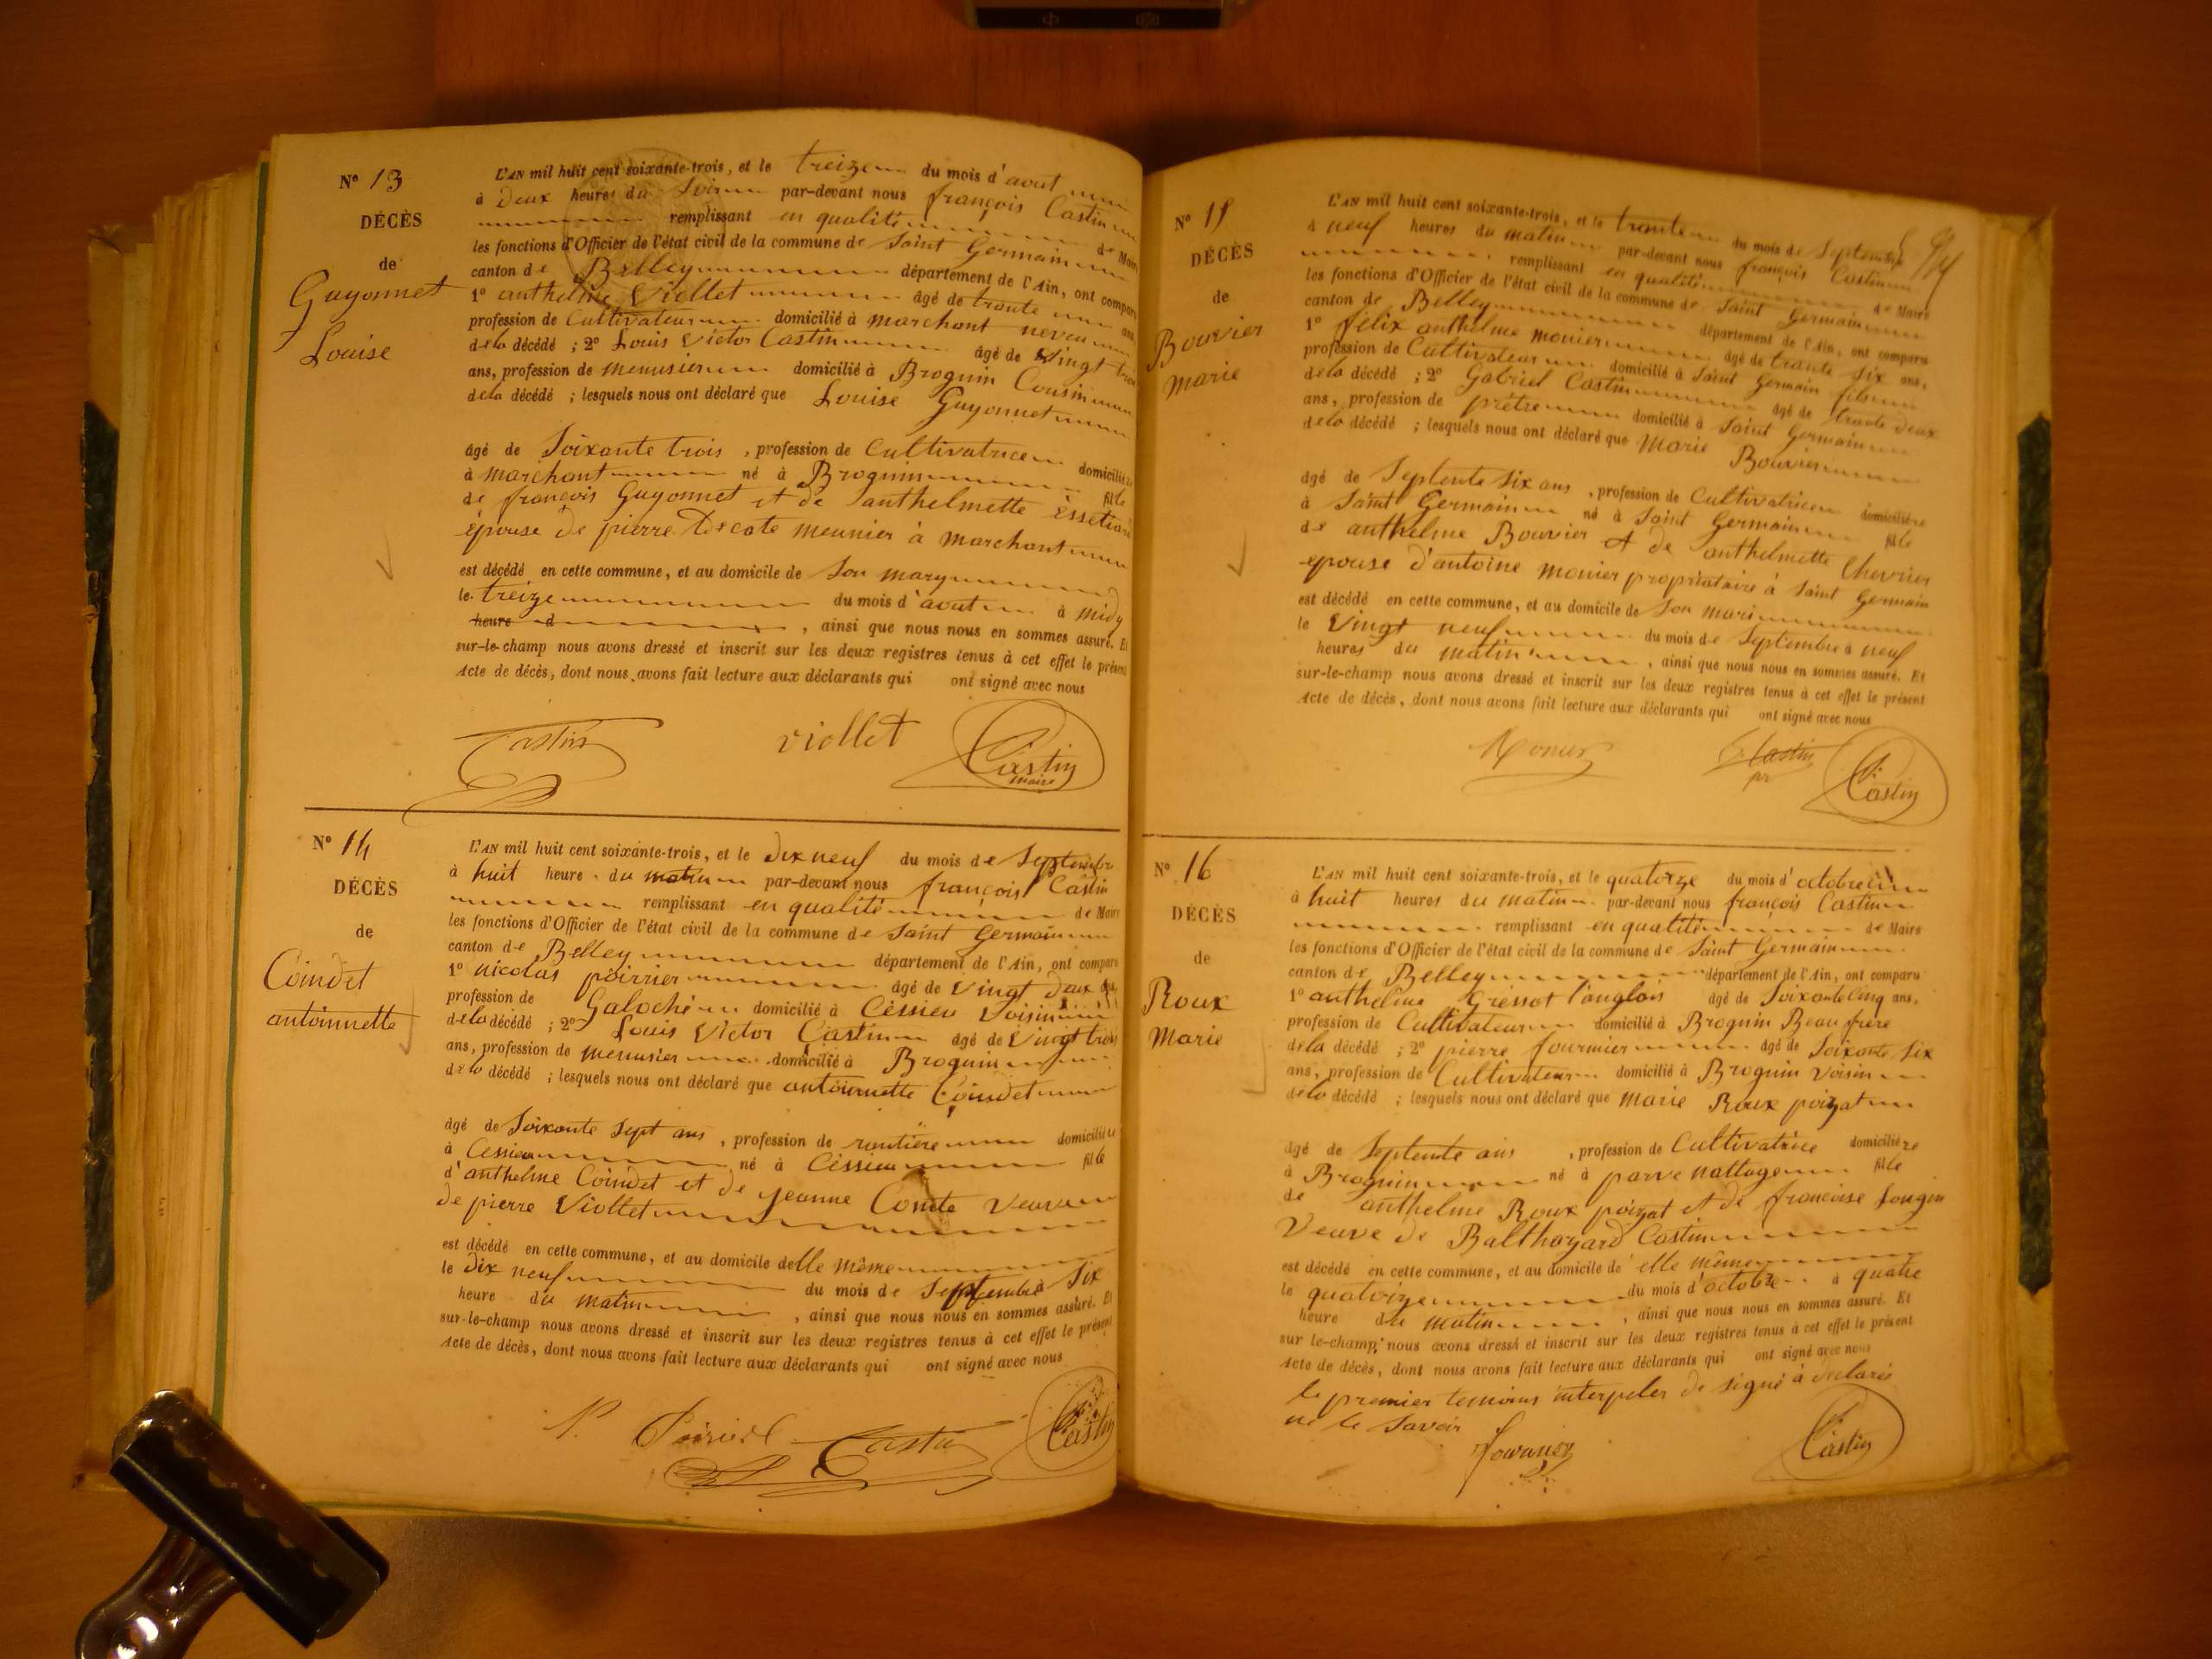 N° 13
DÉCÈS
de
Guyonnet
Louise
L'AN mil huit cent soixante-trois, et le treize du mois d'aout
à Deux heures du Soir par-devant nous françois Castin
remplissant en qualité de Maire
les fonctions d'Officier de l'état civil de la commune de Saint Germain
canton de Belley département de l'Ain, ont comparu
1° anthelme Viollet âgé de trente ans,
profession de Cultivateur domicilié à marchant neveu
de la décédé ; 2° Louis Victor Castin âgé de Vingt trois
ans, profession de menusier domicilié à Brognin Cousin
de la décédé ; lesquels nous ont déclaré que Louise Guyonnet
âgé de Soixante trois , profession de Cultivatrice domiciliée
à marchant né à Brognin fille
de françois Guyonnet et de anthelmette
épouse de pierre Decote meunier à marchant
est décédé en cette commune, et au domicile de Son mary
le treize du mois d'aout à midy
heure d , ainsi que nous nous en sommes assuré. Et
sur-le-champ nous avons dressé et inscrit sur les deux registres tenus à cet effet le présent
Acte de décès, dont nous avons fait lecture aux déclarants qui ont signé avec nous
Castin viollet Castin
maire
N° 14
DÉCÈS
de
Coindet
antoinnette
L'AN mil huit cent soixante-trois, et le dix neuf du mois de Septembre
à huit heure du matin par-devant nous françois Castin
remplissant en qualité de Maire
les fonctions d'Officier de l'état civil de la commune de Saint Germain
canton de Belley département de l'Ain, ont comparu
1° nicolas poirrier âgé de Vingt deux ans
profession de Galoché domicilié à Cessieu Voisin
de la décédé ; 2° Louis Victor Castin âgé de Vingt trois
ans, profession de menusier domicilié à Brognin
de la décédé ; lesquels nous ont déclaré que antoinnette Coindet
âgé de Soixante Sept ans , profession de rentière domiciliée
à Cessieu né à Cessieu fille
d'anthelme Coindet et de jeanne Comte Veuve
de pierre Viollet
est décédé en cette commune, et au domicile delle même
le dix neuf du mois de Septembre à Six
heure du matin , ainsi que nous nous en sommes assuré. Et
sur-le-champ nous avons dressé et inscrit sur les deux registres tenus à cet effet le présent
Acte de décès, dont nous avons fait lecture aux déclarants qui ont signé avec nous
N. Poirier Castin Castin
N° 15
DÉCÈS
de
Bouvier
marie
L'AN mil huit cent soixante-trois, et le trente du mois de Septembre
à neuf heures du matin par-devant nous françois Castin
remplissant en qualité de Maire
les fonctions d'Officier de l'état civil de la commune de Saint Germain
canton de Belley département de l'Ain, ont comparu
1° félix anthelme monier âgé de trante Six ans,
profession de Cultivateur domicilié à Saint Germain fils
de la décédé ; 2° Gabriel Castin âgé de trante deux
ans, profession de prêtre domicilié à Saint Germain
de la décédé ; lesquels nous ont déclaré que Marie Bouvier
âgé de Septente Six ans , profession de Cultivatrice domiciliée
à Saint Germain né à Saint Germain fille
de anthelme Bouvier et de anthelmette Chevrier
epouse d'antoine monier propriataire à Saint Germain
est décédé en cette commune, et au domicile de Son mari
le Vingt neuf du mois de Septembre à neuf
heures du matin , ainsi que nous nous en sommes assuré. Et
sur-le-champ nous avons dressé et inscrit sur les deux registres tenus à cet effet le présent
Acte de décès, dont nous avons fait lecture aux déclarants qui ont signé avec nous
Monier G. Castin Castin
pr
N° 16
DÉCÈS
de
Roux
Marie
L'AN mil huit cent soixante-trois, et le quatorze du mois d'octobre
à huit heures du matin par-devant nous françois Castin
remplissant en qualité de Maire
les fonctions d'Officier de l'état civil de la commune de Saint Germain
canton de Belley département de l'Ain, ont comparu
1° anthelme Gressot l'anglois âgé de Soixante Cinq ans,
profession de Cultivateur domicilié à Brognin Beau frère
de la décédé ; 2° pierre fourmier âgé de Soixante Six
ans, profession de Cultivateur domicilié à Brognin Voisin
de la décédé ; lesquels nous ont déclaré que marie Roux poizat
âgé de Septente ans , profession de Cultivatrice domiciliée
à Brognin né à parve nattage fille
de anthelme Roux poizat et de francoise
Veuve de Balthazard Castin
est décédé en cette commune, et au domicile de elle même
le quatorze du mois d'octobre à quatre
heure du matin , ainsi que nous nous en sommes assuré. Et
sur le-champ, nous avons dressé et inscrit sur les deux registres tenus à cet effet le présent
Acte de décès, dont nous avons fait lecture aux déclarants qui ont signé avec nous
le premier temoins interpeler de signé à declaré
ne le Savoir
Castin